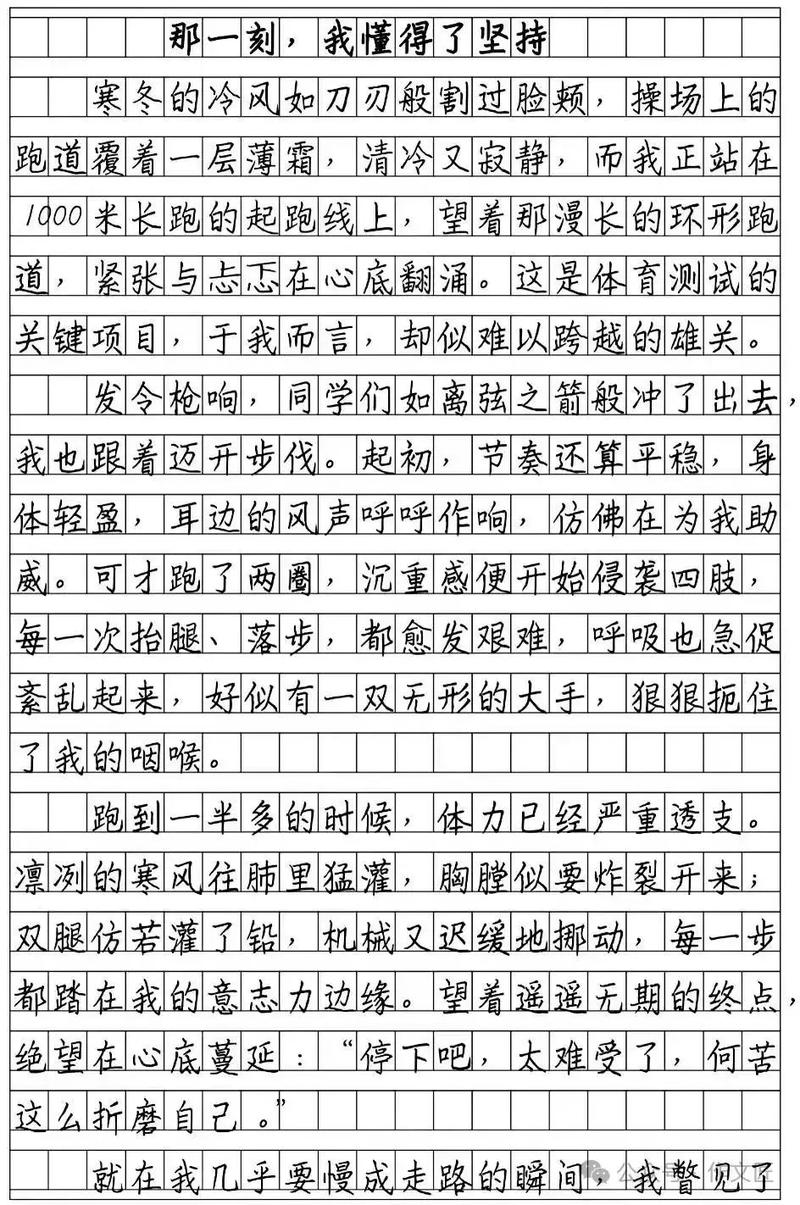 那一刻，我懂得了坚持
寒冬的冷风如刀刃般割过脸颊，操场上的
跑道覆着一层薄霜，清冷又寂静，而我正站在
1000米长跑的起跑线上，望着那漫长的环形跑
道，紧张与忐忑在心底翻涌。这是体育测试的
关键项目，于我而言，却似难以跨越的雄关。
发令枪响，同学们如离弦之箭般冲了出去，
我也跟着迈开步伐。起初，节奏还算平稳，身
体轻盈，耳边的风声呼呼作响，仿佛在为我助
威。可才跑了两圈，沉重感便开始侵袭四肢，
每一次抬腿、落步，都愈发艰难，呼吸也急促
紊乱起来，好似有一双无形的大手，狠狠扼住
了我的咽喉。
跑到一半多的时候，体力已经严重透支。
凛冽的寒风往肺里猛灌，胸膛似要炸裂开来；
双腿仿若灌了铅，机械又迟缓地挪动，每一步
都踏在我的意志力边缘。望着遥遥无期的终点，
绝望在心底蔓延：“停下吧，太难受了，何苦
这么折磨自己。”
就在我几乎要慢成走路的瞬间，我瞥见了